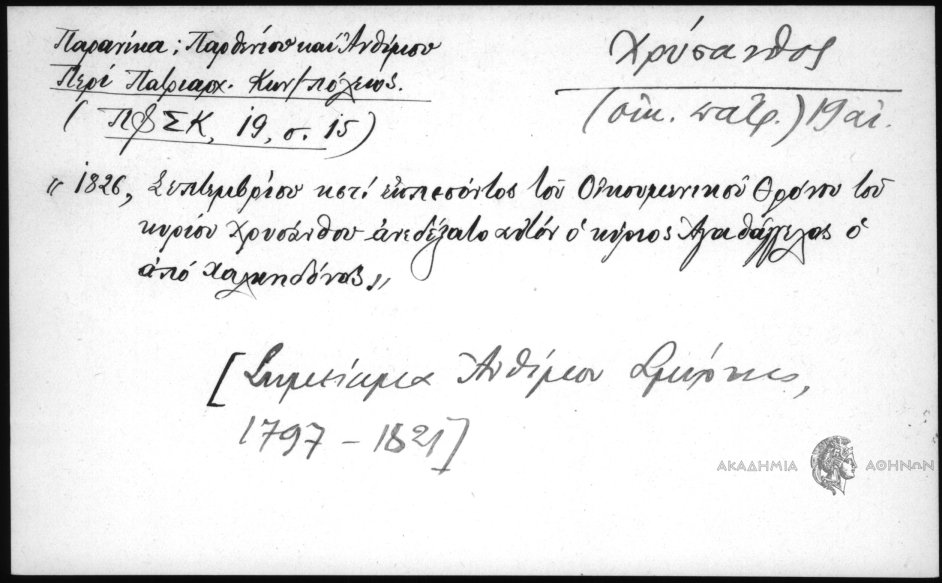 Παρανίκα; Παρθενίου και Ανθίμου
Περί Πατριαρχ. Κων/πόλεως.
(ΠΦΣΚ, 19, σ. 15)
Χρύσανθος
(οικ. πατρ.) 19 αι.
« 1826, Σεπτεμβρίου κστ΄ εκπεσόντος τοῦ Οἰκουμενικοῦ Θρόνου τοῦ
κυρίου Χρυσάνθου ἀνεδέξατο αὐτόν ὁ κύριος Ἀγαθάγγελος ὁ
ἀπό Χαλκηδόνος »
[Σημείωμα Ανθίμου Σμύρνης,
1797 – 1821]
ΑΚΑΔΗΜΙΑ ΑΘΗΝΩΝ